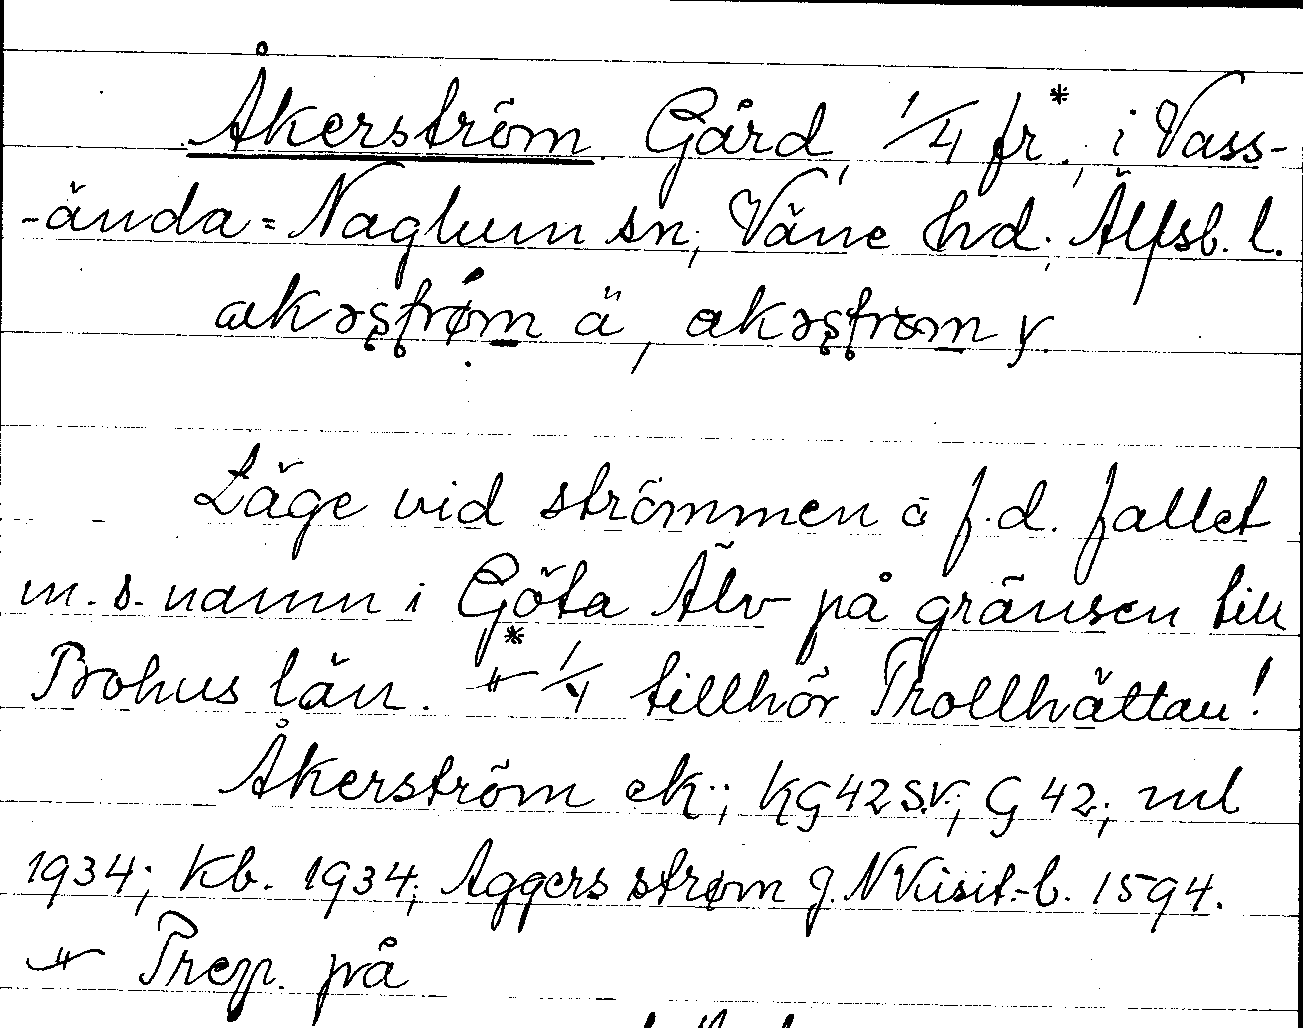 Åkerström Gård, 1/4 fr*., i Vass-
-ända-Naglum sn, Väne hd, Älfsb. l.
akəʂʈrøm ä, akəʂʈrøm y.
Läge vid strömmen o f.d. fallet
m. s. namn i Göta Älv på gränsen till
Bohus län. * 1/4 tillhör Trollhättan!
Åkerström ek.; KG42SV; G 42; ml
1934; Kb. 1934; Aggers strøm J.N Visit.-b. 1594.
Prep. på